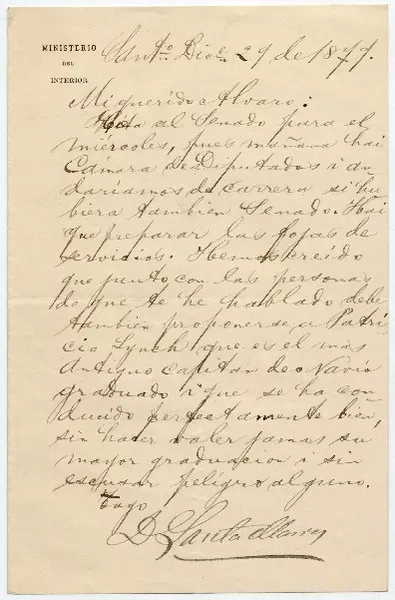 MINISTERIO
DEL
INTERIOR
Santo. Dice. 29 de 1877.
Mi querido Alvaro:
al Senado para el
miércoles, pues mañana hai
Cámara de Diputados i an
daríamos de carrera si hu
biera tambien Senado. Hai
que preparar las fojas de
servicios. Hemos creido
que junto con las personas
de que te he hablado debe
tambien proponerse a Patri
cio Lynch que es el mas
antiguo capitan de Navío
graduado i que se ha con
ducido perfectamente bien,
sin hacer valer jamas su
mayor graduacion i sin
escusar peligro alguno.
Tuyo
D. Santa Maria